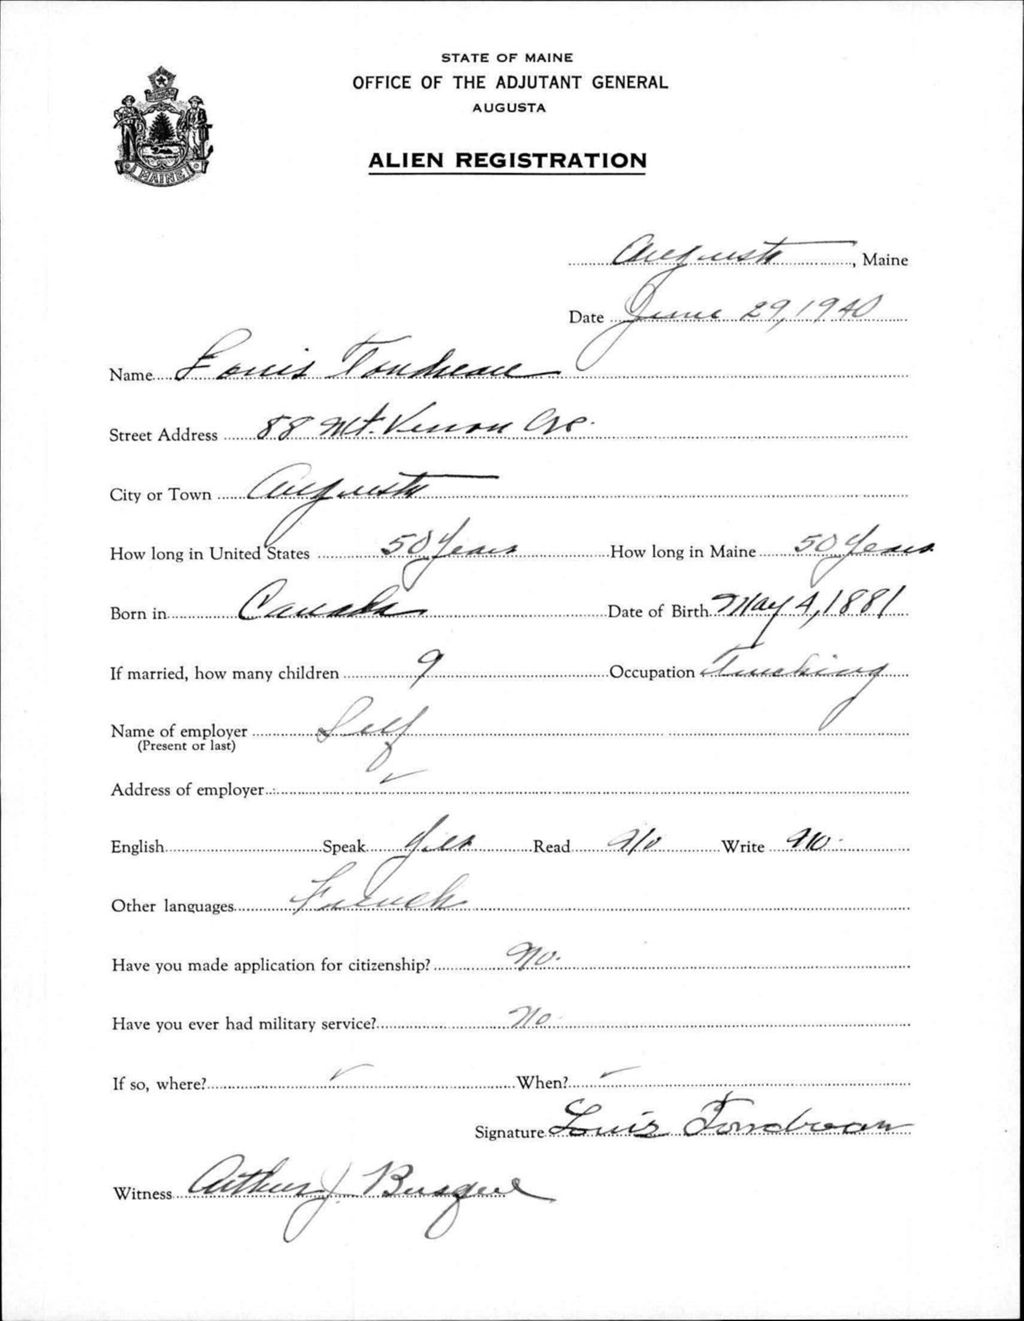 STATE OF MAINE
OFFICE OF THE ADJUTANT GENERAL
AUGUSTA
ALIEN REGISTRATION
MAINE
Augusta, Maine
Date June 29, 1940
Name Louis Tondreau
Street Address 88 Mt. Vernon Ave.
City or Town Augusta
How long in United States 50 Years How long in Maine 50 Years
Born in Canada Date of Birth May 4, 1881
If married, how many children 9 Occupation Trucking
Name of employer Self
(Present or last)
Address of employer ✓
English Speak Yes Read No Write No.
Other languages French
Have you made application for citizenship? No.
Have you ever had military service? No.
If so, where? ✓ When? ✓
Signature Louis Tondreau
Witness Arthur J. Busque